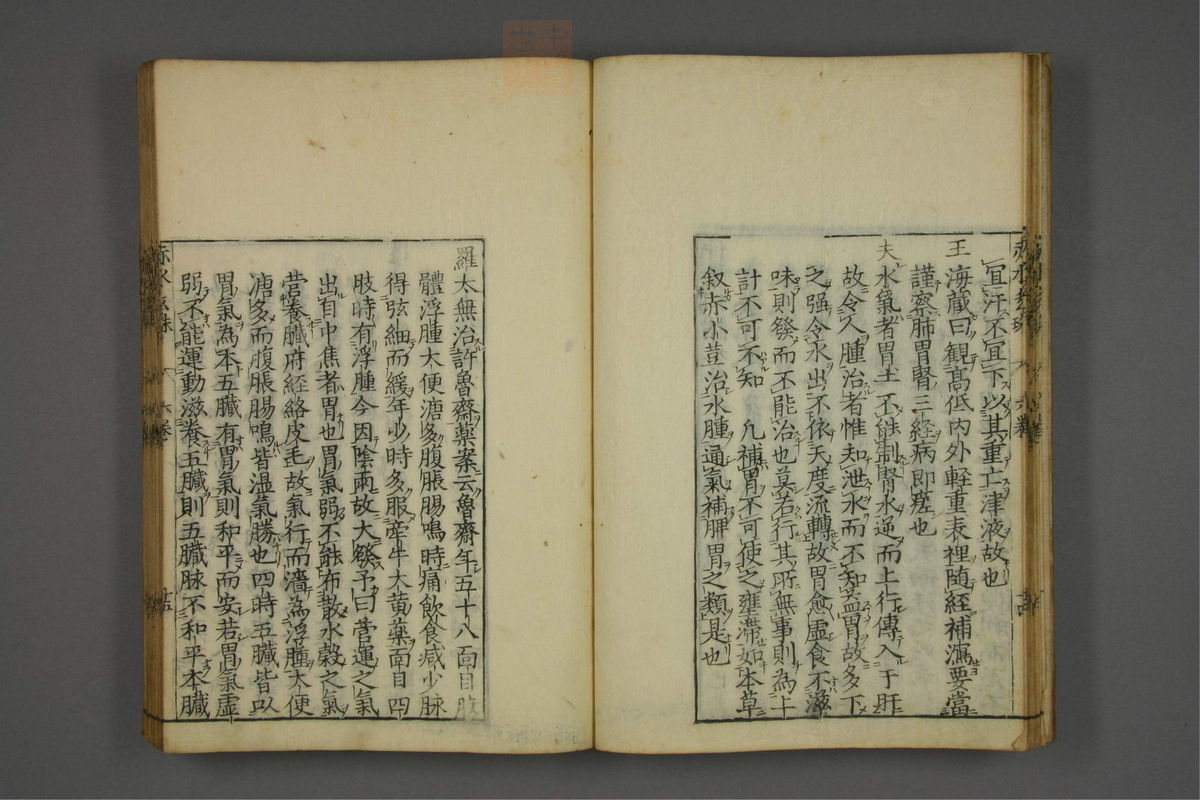 宜汗不宜下以其重亡津液故也
王海藏曰観髙低内外軽重表裡随経補瀉要當
謹察肺胃腎三経病即瘥也
夫水氣者胃土不能制腎水逆而上行傳入于肝
故令人腫治者惟知泄水而不知益胃故多下
之强令水出不依天度流轉故胃愈虚食不滋
味則發而不能治也莫若行其所無事則為上
計不可不知凢補胃不可使之壅滞如本草
叙赤小荳治水腫通氣補脾胃之類是也
羅太無治許魯齋藥案云魯齋年五十八面目肢
體浮腫大便溏多腹脹腸鳴時痛飲食减少脉
得弦細而緩年少時多服牽牛大黄藥面目四
肢時有浮腫今因陰雨故大發予曰营運之氣
出自中焦者胃也胃氣弱不能布散水穀之氣
营養臟府経絡皮毛故氣行而濇為浮腫大便
溏多而腹脹腸鳴皆温氣勝也四時五臟皆以
胃氣為本五臟有胃氣則和平而安若胃氣虚
弱不能運動滋養五臟則五臟脉不和平本臟